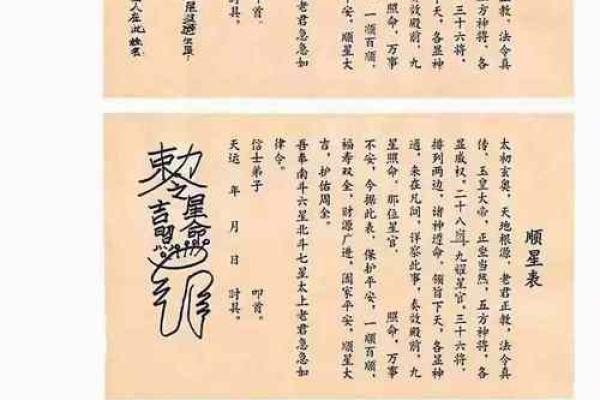 正教，法令真
五方神将，各
三十六将，
下天，各显神
效殿前，九
照命，万事
一顺百顺，
平安，顺星大
老君急急如
叩首。
时具。
人在此姓名
顺星表
太初玄奥，天地根源，老君正教，法令真
传，玉皇大帝，正坐当然，五方神将，各
显威权，二十八宿，九耀星官，三十六将，
排到两边，诸神遵命，领旨下天，各显神
通，来在凡间，详察此事，奏效殿前，九
星照命，那位星官， 照命，万事
不安，今据此表，保护平安，一顺百顺，
福寿双全，财源广进，阖家平安，顺星大
吉，护佑周全。
吾奉南斗六星北斗七星太上老君急急如
律令。
信士弟子 叩首。
天运 年 月 日 时具。